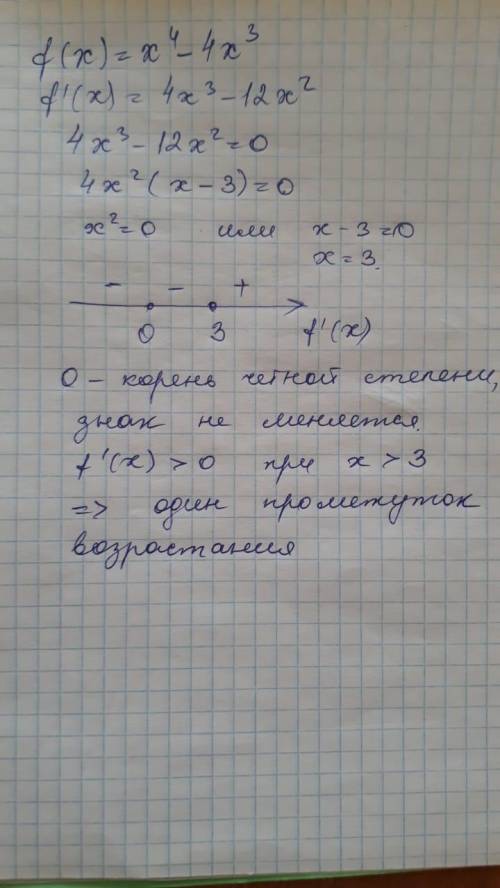 f(x) = x⁴ - 4x³
f'(x) = 4x³ - 12x²
4x³ - 12x² = 0
4x²(x - 3) = 0
x² = 0 или x - 3 = 0
x = 3.
- - +
0 3 f'(x)
0 - корень чётной степени,
знак не меняется.
f'(x) > 0 при x > 3
=> один промежуток
возрастания